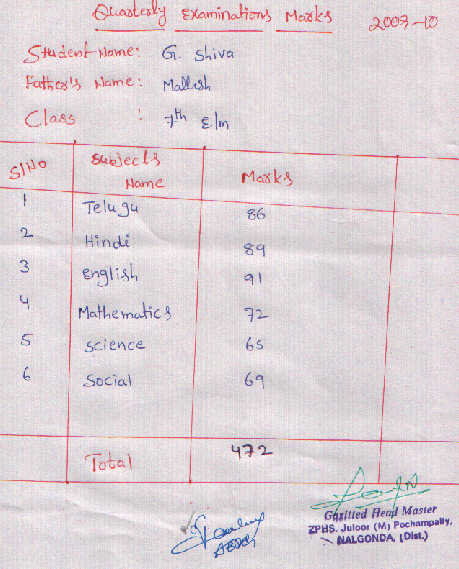 Quarterly Examinations Marks 2009-10
Student Name: G. Shiva
Father's Name: Mallesh
Class : 7th E/m
Sl No Subjects Name Marks
1 Telugu 86
2 Hindi 89
3 English 91
4 Mathematics 72
5 Science 65
6 Social 69
Total 472
Gazitted Head Master
ZPHS. Juloor (M) Pochampally,
NALGONDA, (Dist.)